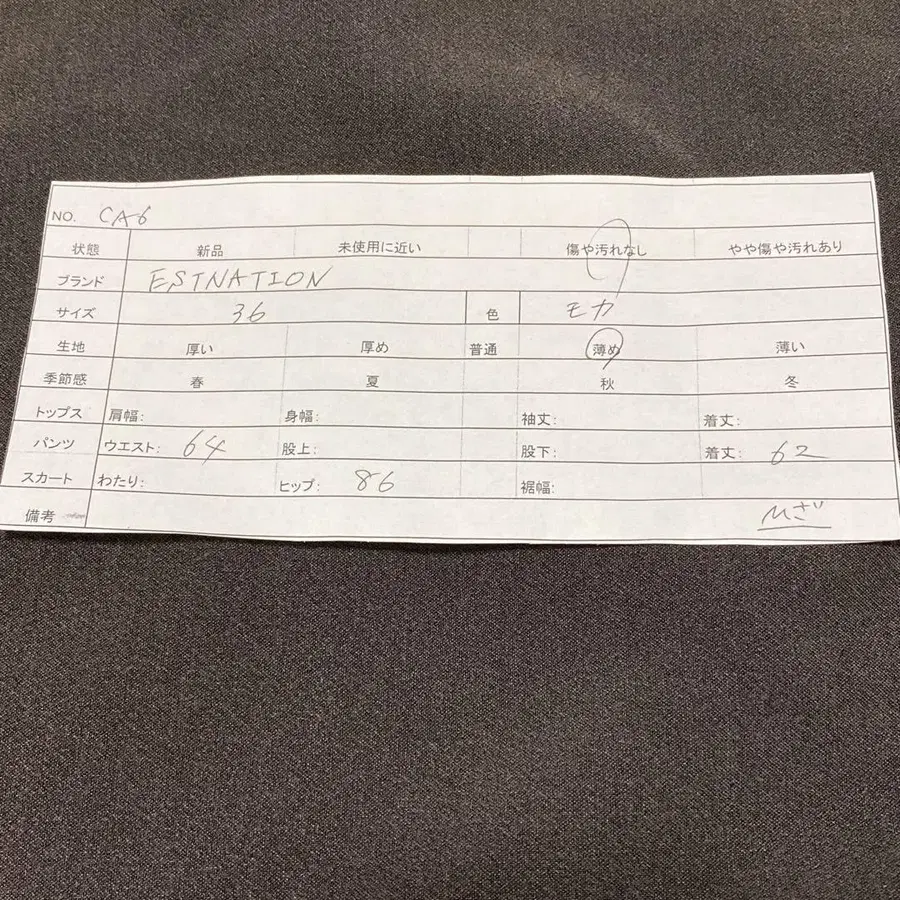 NO. CA6
状態 新品 未使用に近い 傷や汚れなし やや傷や汚れあり
ブランド ESTNATION
サイズ 36 色 モカ
生地 厚い 厚め 普通 薄め 薄い
季節感 春 夏 秋 冬
トップス 肩幅: 身幅: 袖丈: 着丈:
パンツ ウエスト: 64 股上: 股下: 着丈: 62
スカート わたり: ヒップ: 86 裾幅:
備考